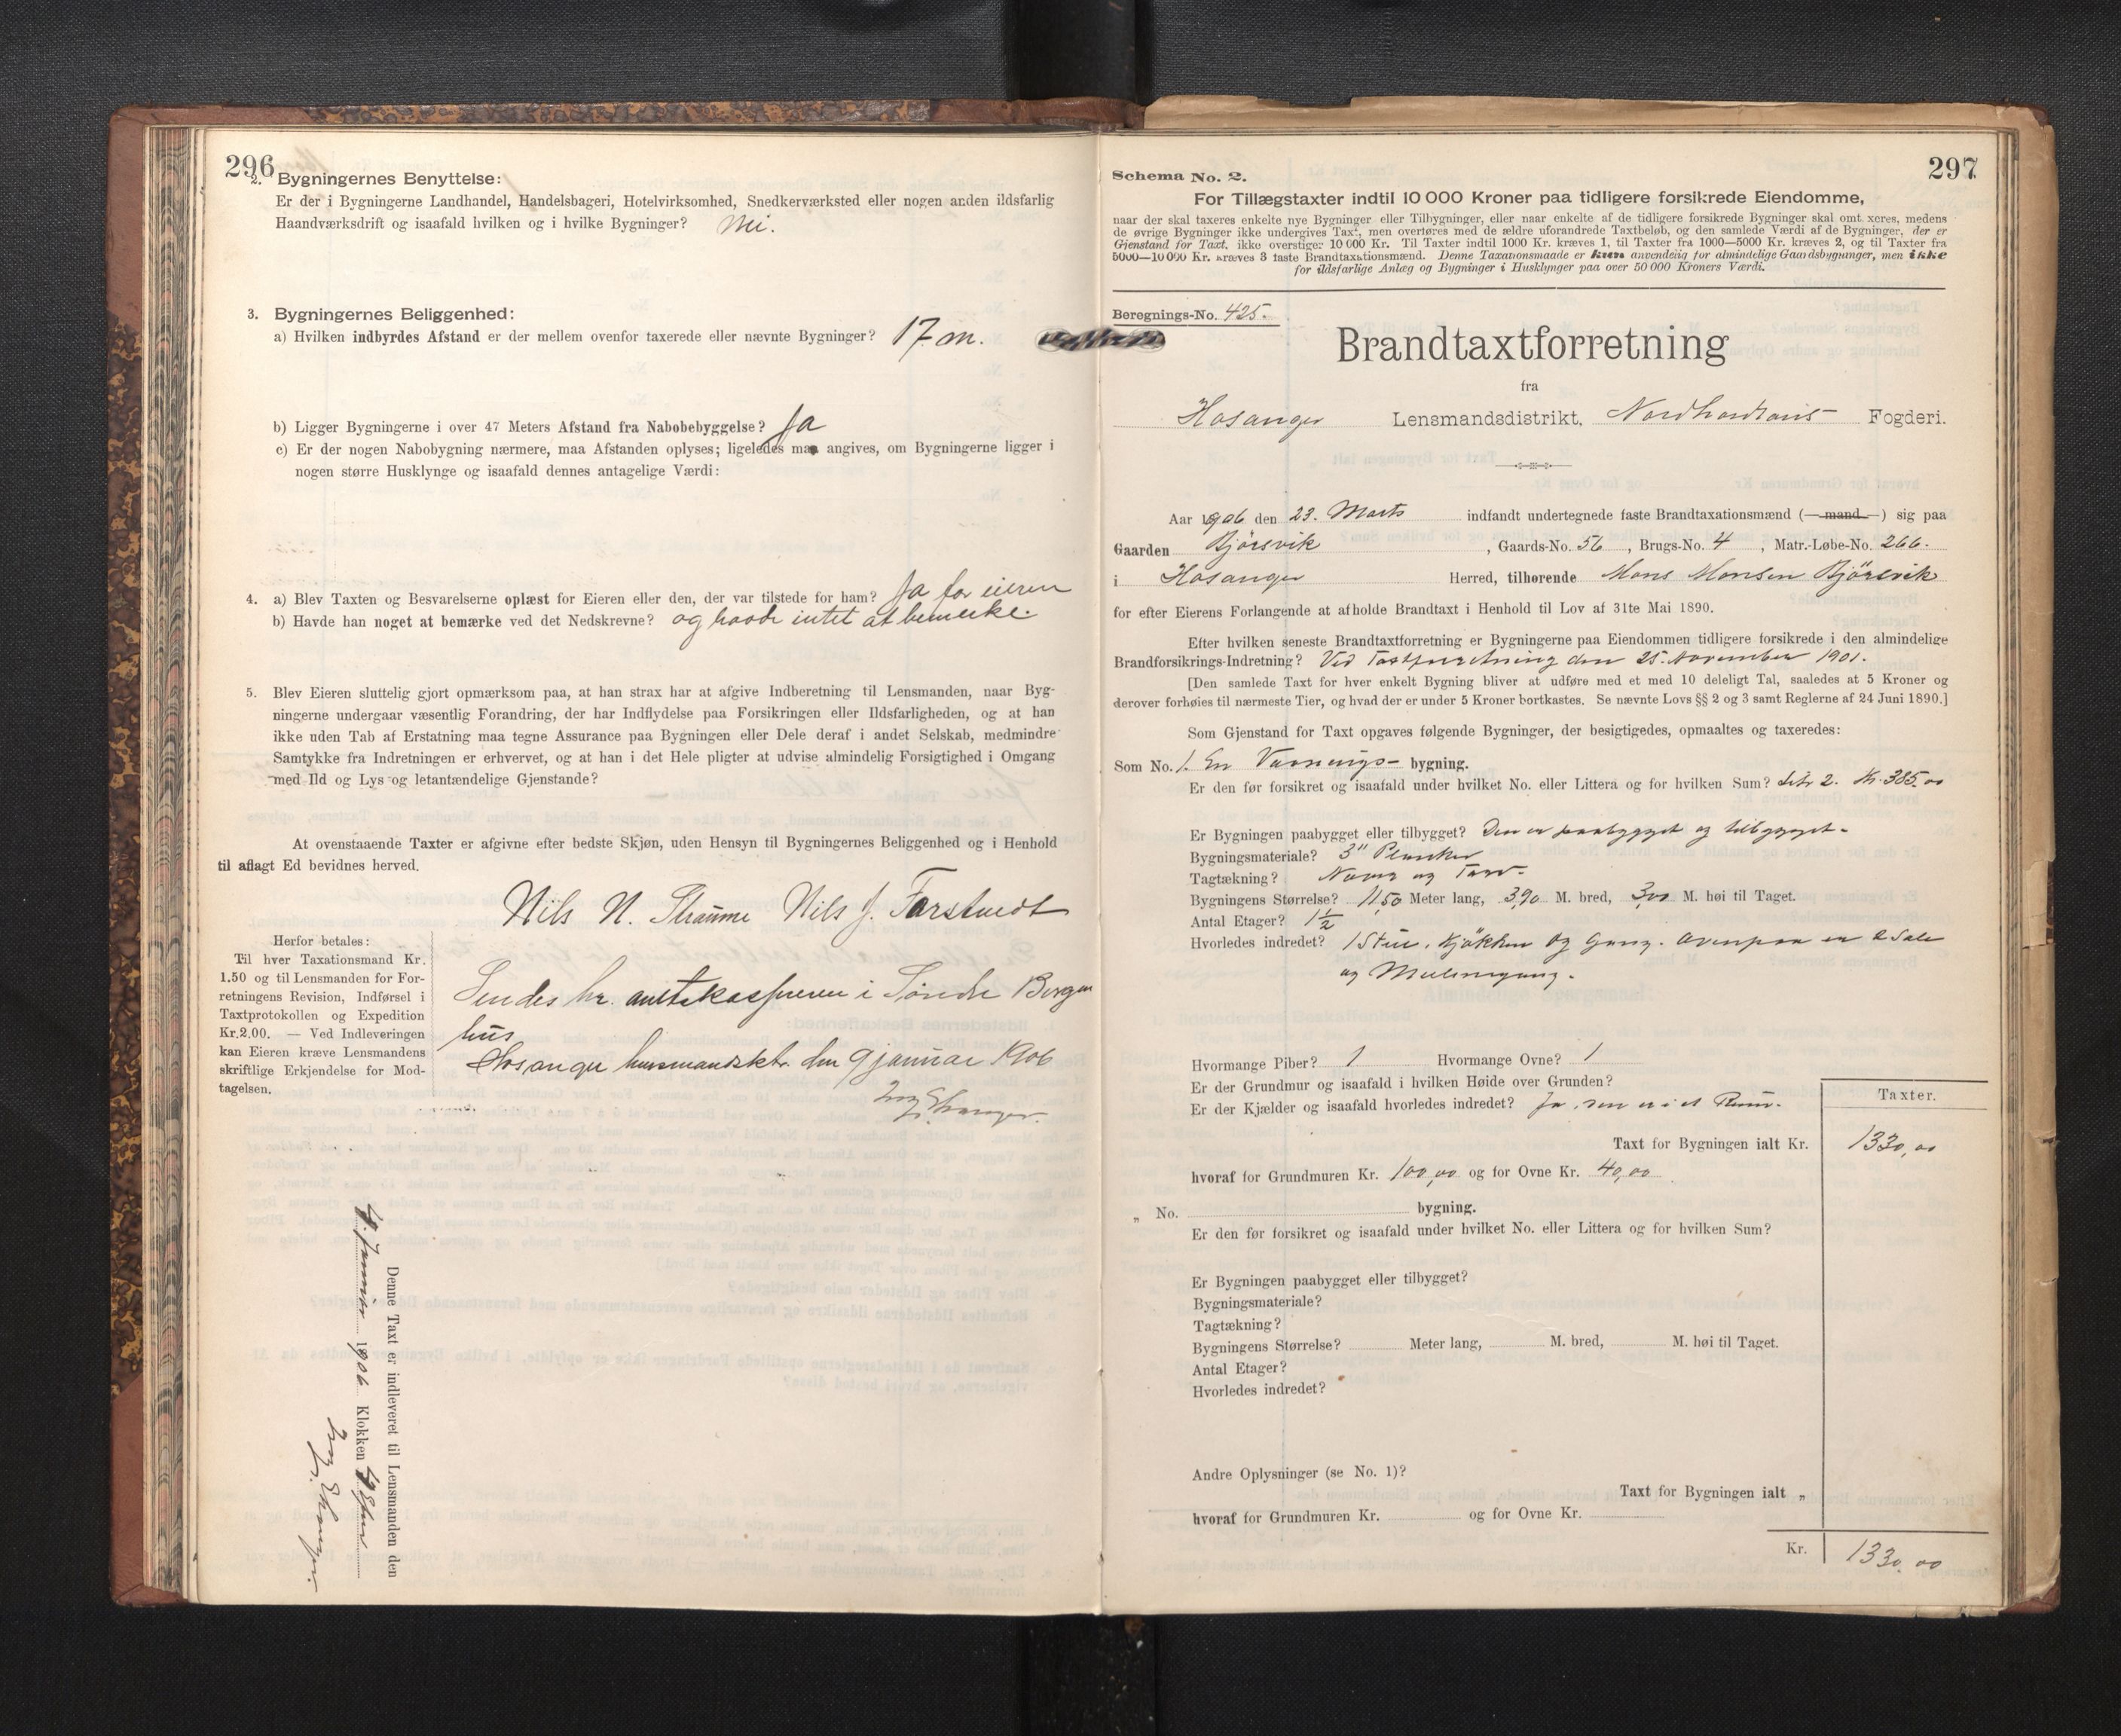 296
2. Bygningernes Benyttelse:
Er der i Bygningerne Landhandel, Handelsbageri, Hotelvirksomhed, Snedkerværksted eller nogen anden ildsfarlig
Haandværksdrift og isaafald hvilken og i hvilke Bygninger? Nei.
3. Bygningernes Beliggenhed:
a) Hvilken indbyrdes Afstand er der mellem ovenfor taxerede eller nævnte Bygninger? 17 m.
b) Ligger Bygningerne i over 47 Meters Afstand fra Nabobebyggelse? Ja
c) Er der nogen Nabobygning nærmere, maa Afstanden oplyses; ligeledes maa angives, om Bygningerne ligger i
nogen større Husklynge og isaafald dennes antagelige Værdi:
4. a) Blev Taxten og Besvarelserne oplæst for Eieren eller den, der var tilstede for ham? Ja for eieren
b) Havde han noget at bemærke ved det Nedskrevne? og havde intet at bemerke.
5. Blev Eieren sluttelig gjort opmærksom paa, at han strax har at afgive Indberetning til Lensmanden, naar Byg-
ningerne undergaar væsentlig Forandring, der har Indflydelse paa Forsikringen eller Ildsfarligheden, og at han
ikke uden Tab af Erstatning maa tegne Assurance paa Bygningen eller Dele deraf i andet Selskab, medmindre
Samtykke fra Indretningen er erhvervet, og at han i det Hele pligter at udvise almindelig Forsigtighed i Omgang
med Ild og Lys og letantændelige Gjenstande?
At ovenstaaende Taxter er afgivne efter bedste Skjøn, uden Hensyn til Bygningernes Beliggenhed og i Henhold
til aflagt Ed bevidnes herved.
Nils N. Straume Nils J.
Herfor betales:
Til hver Taxationsmand Kr.
1.50 og til Lensmanden for For-
retningens Revision, Indførsel i
Taxtprotokollen og Expedition
Kr.2.00. — Ved Indleveringen
kan Eieren kræve Lensmandens
skriftlige Erkjendelse for Mod-
tagelsen.
Sendes hr. amtskassereren i Søndre Bergen
hus
Hosanger lensmandsktr. den 9 januar 1906
Denne Taxt er indleveret til Lensmanden den
4. Januar 1906 Klokken 4 Efm
297
Schema No. 2.
For Tillægstaxter indtil 10 000 Kroner paa tidligere forsikrede Eiendomme,
naar der skal taxeres enkelte nye Bygninger eller Tilbygninger, eller naar enkelte af de tidligere forsikrede Bygninger skal omtaxeres, medens
de øvrige Bygninger ikke undergives Taxt, men overføres med de ældre uforandrede Taxtbeløb, og den samlede Værdi af de Bygninger, der er
Gjenstand for Taxt, ikke overstiger 10 000 Kr. Til Taxter indtil 1000 Kr. kræves 1, til Taxter fra 1000—5000 Kr. kræves 2, og til Taxter fra
5000—10 000 Kr. kræves 3 faste Brandtaxationsmænd. Denne Taxationsmaade er kun anvendelig for almindelige Gaardsbygninger, men ikke
for ildsfarlige Anlæg og Bygninger i Husklynger paa over 50 000 Kroners Værdi.
Beregnings-No. 425.
Brandtaxtforretning
fra
Hosanger Lensmandsdistrikt, Nordhordlans Fogderi.
Aar 1906 den 23. Marts indfandt undertegnede faste Brandtaxationsmænd (—mand—) sig paa
Gaarden Bjørsvik, Gaards-No. 56, Brugs-No. 4, Matr.-Løbe-No. 266.
i Hosanger Herred, tilhørende Mons Monsen Bjørsvik
for efter Eierens Forlangende at afholde Brandtaxt i Henhold til Lov af 31te Mai 1890.
Efter hvilken seneste Brandtaxtforretning er Bygningerne paa Eiendommen tidligere forsikrede i den almindelige
Brandforsikrings-Indretning? Ved Taxtforretning den 25. November 1901.
[Den samlede Taxt for hver enkelt Bygning bliver at udføre med et med 10 deleligt Tal, saaledes at 5 Kroner og
derover forhøies til nærmeste Tier, og hvad der er under 5 Kroner bortkastes. Se nævnte Lovs §§ 2 og 3 samt Reglerne af 24 Juni 1890.]
Som Gjenstand for Taxt opgaves følgende Bygninger, der besigtigedes, opmaaltes og taxeredes:
Som No. 1. En Vaanings- bygning.
Er den før forsikret og isaafald under hvilket No. eller Littera og for hvilken Sum? Litr 2. Kr. 385.00
Er Bygningen paabygget eller tilbygget? Den er paabygget og tilbygget.
Bygningsmateriale? 3" Planker
Tagtækning? Næver og Torv.
Bygningens Størrelse? 11,50 Meter lang, 3,90 M. bred, 3,00 M. høi til Taget.
Antal Etager? 1 1/2
Hvorledes indredet? 1 Stue, Kjøkken og Gang. Ovenpaa en 2 Sale
og Mellemgang.
Hvormange Piber? 1 Hvormange Ovne? 1
Er der Grundmur og isaafald i hvilken Høide over Grunden?
Er der Kjælder og isaafald hvorledes indredet? Ja, den er i et Rum.
Taxter.
Taxt for Bygningen ialt Kr. 1330,00
hvoraf for Grundmuren Kr. 100,00 og for Ovne Kr. 40,00
„ No. bygning.
Er den før forsikret og isaafald under hvilket No. eller Littera og for hvilken Sum?
Er Bygningen paabygget eller tilbygget?
Bygningsmateriale?
Tagtækning?
Bygningens Størrelse? Meter lang, M. bred, M. høi til Taget.
Antal Etager?
Hvorledes indredet?
Andre Oplysninger (se No. 1)?
Taxt for Bygningen ialt „
hvoraf for Grundmuren Kr. og for Ovne Kr.
Kr. 1330,00